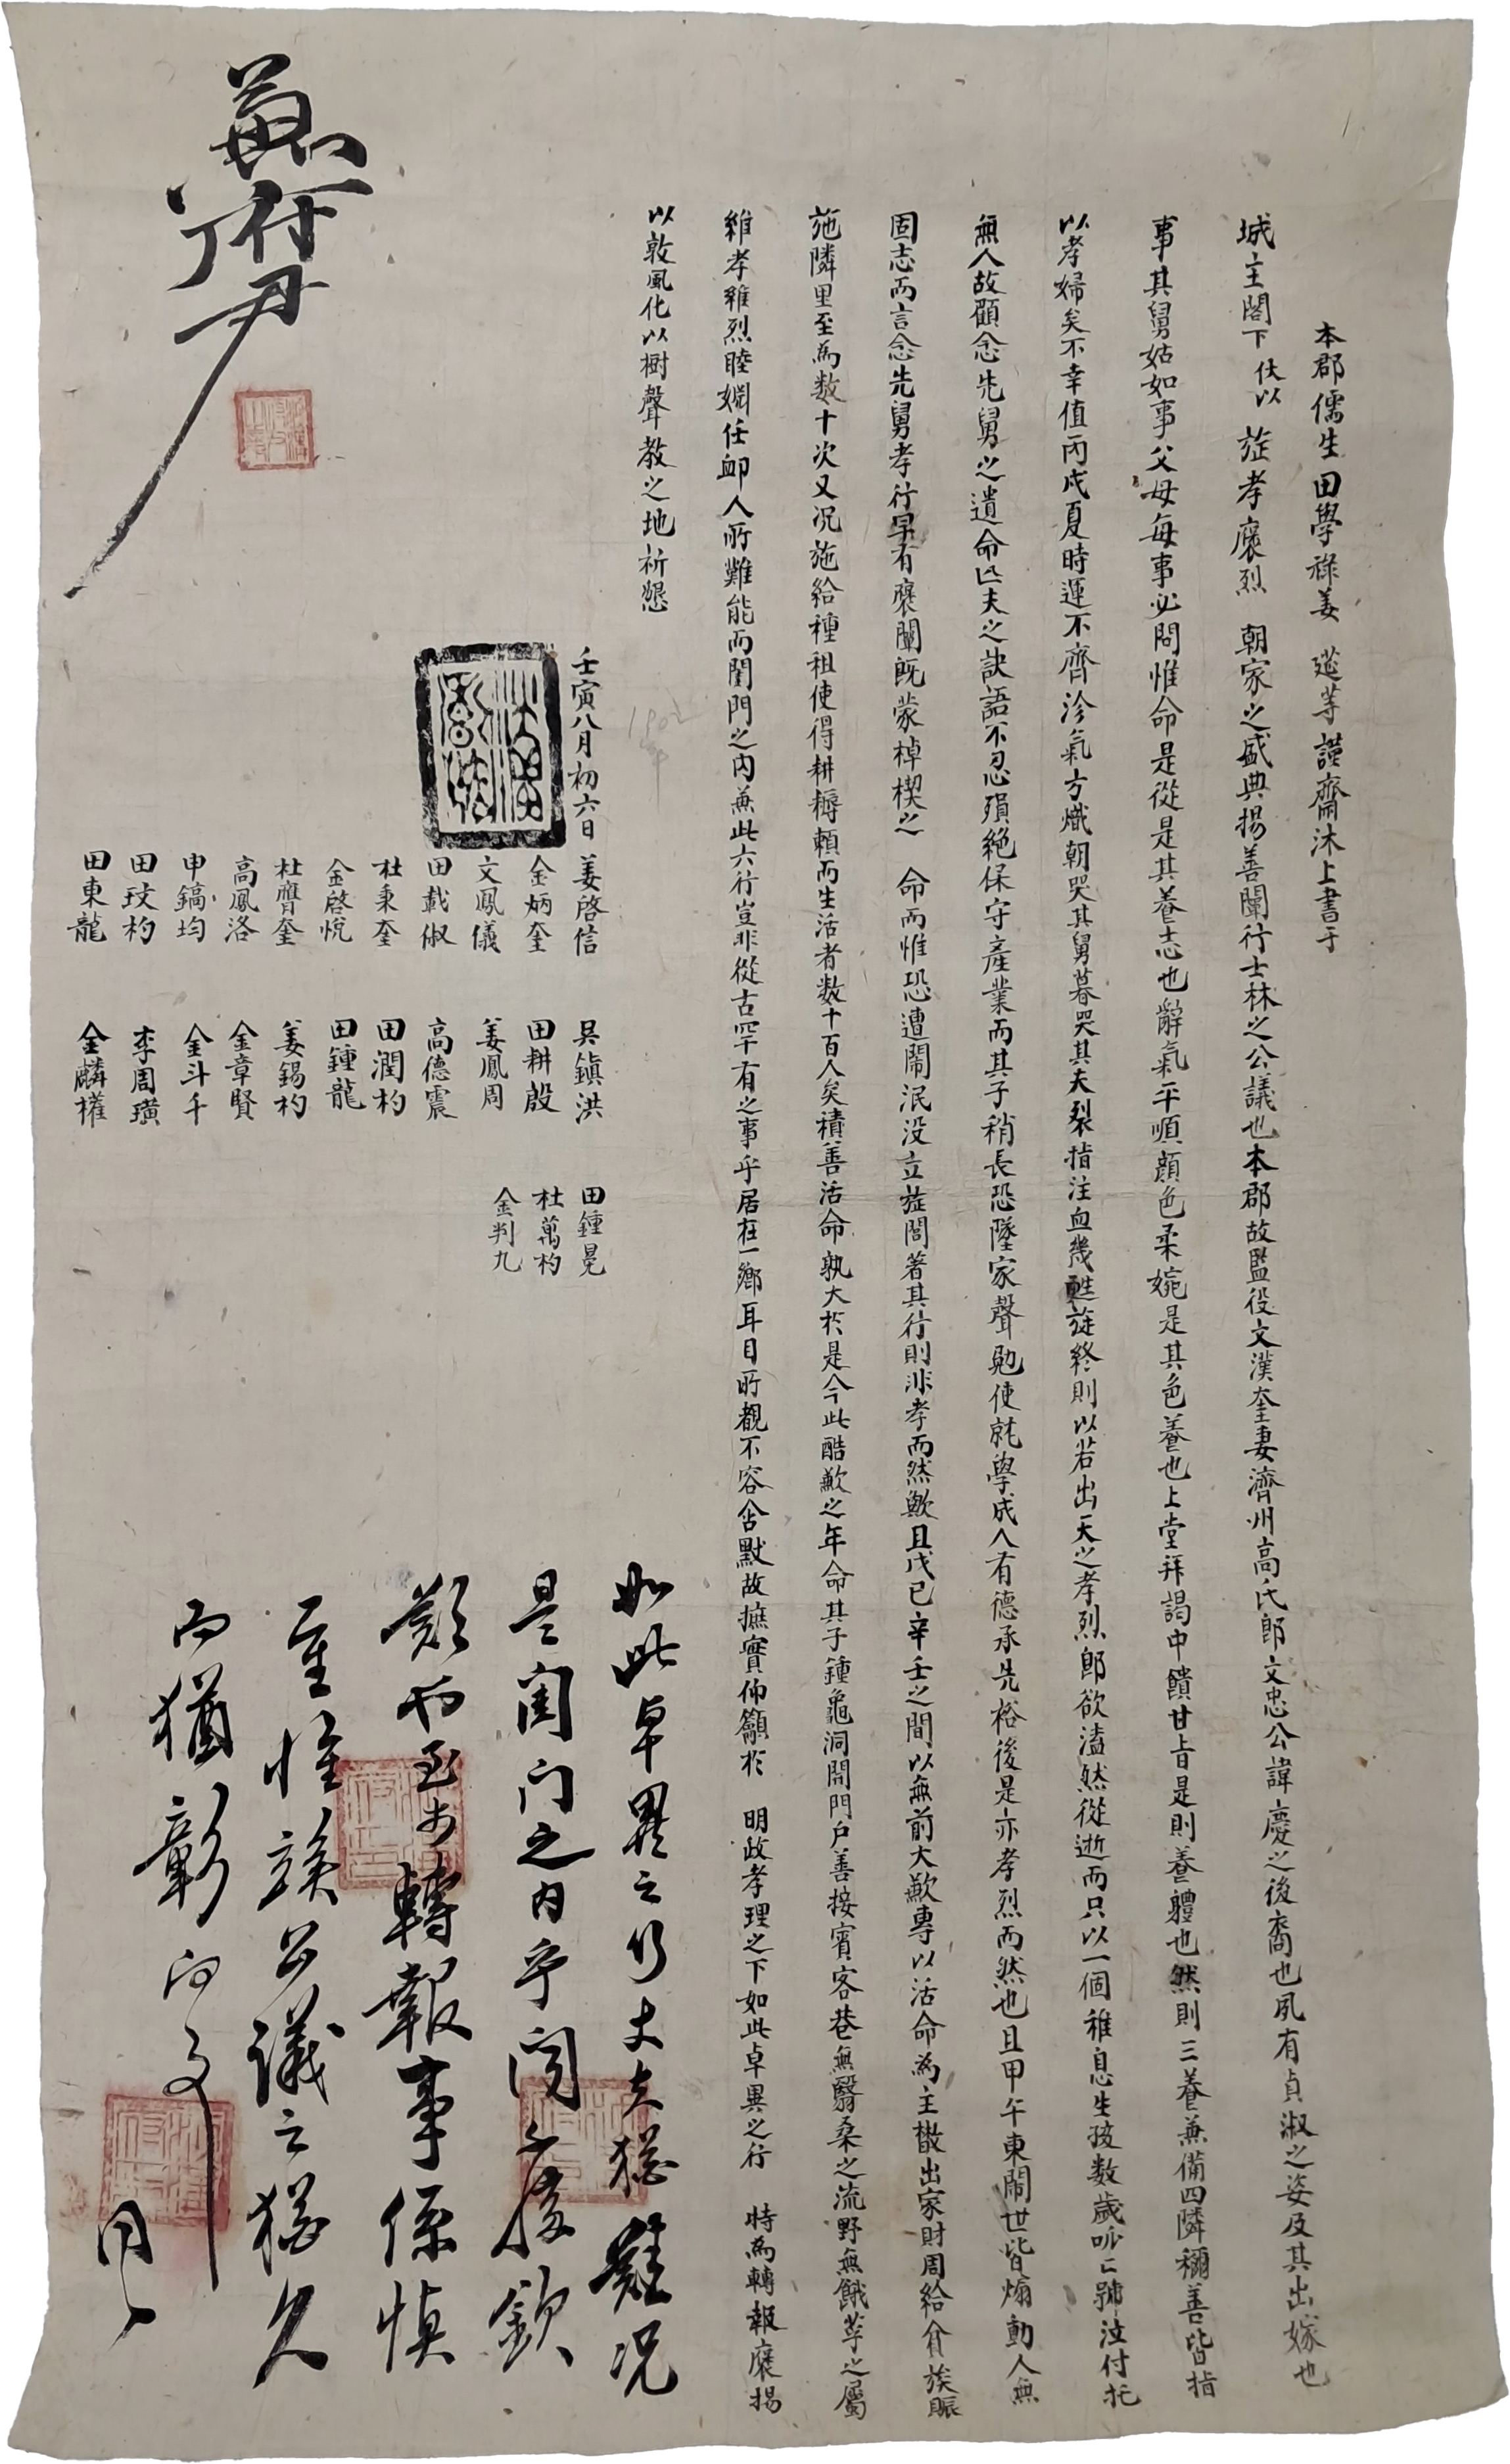 本郡儒生田學祿姜 莚等謹齋沐上書于
城主閤下 伏以 旌孝褒烈 朝家之盛典揚善闡行士林之公議也本郡故監役文漢奎妻濟州高氏郎文忠公諱慶之後裔也夙有貞淑之姿及其出嫁也
事其舅姑如事父母每事必問惟命是從是其養志也辭氣平順顔色柔婉是其色養也上堂拜謁中饋甘旨是則養體也然則三養兼備四隣稱善皆指
以孝婦矣不幸值丙戌夏時運不齊沴氣方熾朝哭其舅暮哭其夫裂指注血幾甦旋終則以若出天之孝烈郎欲溘然從逝而只以一個稚息生孩数歲呱亡號泣付托
無人故顧念先舅之遺命亡夫之訣語不忍殞絶保守產業而其子稍長恐墜家聲勉使就學成人有德承先裕後是亦孝烈而然也且甲午東鬧世皆煽動人無
固志而言念先舅孝行早有褒闡既蒙棹楔之 命而惟恐遭鬧泯没立旌閭著其行則非孝而然歟且戊己辛壬之間以無前大歉專以活命為主樴出家財周給貧族賑
施隣里至為数十次又况施給種租使得耕耨賴而生活者数十百人矣積善活命孰大於是今此酷歉之年命其子鍾龜洞開門户善接賓客巷無翳桑之流野無餓莩之屬
維孝維烈睦婣任卹人所難能而閨門之內兼此六行豈非從古罕有之事乎居在一鄉耳目所覩不容含默故摭實仰籲於 明政孝理之下如此卓異之行 特為轉報褒揚
以敦風化以樹聲教之地祈懇
壬寅八月初六日 姜啓信 吳鎭洪 田鍾晃
金炳奎 田耕殷 杜萬杓
文鳳儀 姜鳳周 金判九
田載俶 高德震
杜秉奎 田潤杓
金啓悅 田鍾龍
杜膺奎 姜錫杓
高鳳洛 金章賢
申鎬均 金斗千
田玟杓 李周璜
田東龍 金麟權
1902年
兼府尹
如此卓異之行丈夫猶難况
是閨门之内乎閱之後欽
歎而至於轉報事係慎
重惟竢公議之猶久
而猶彰向事